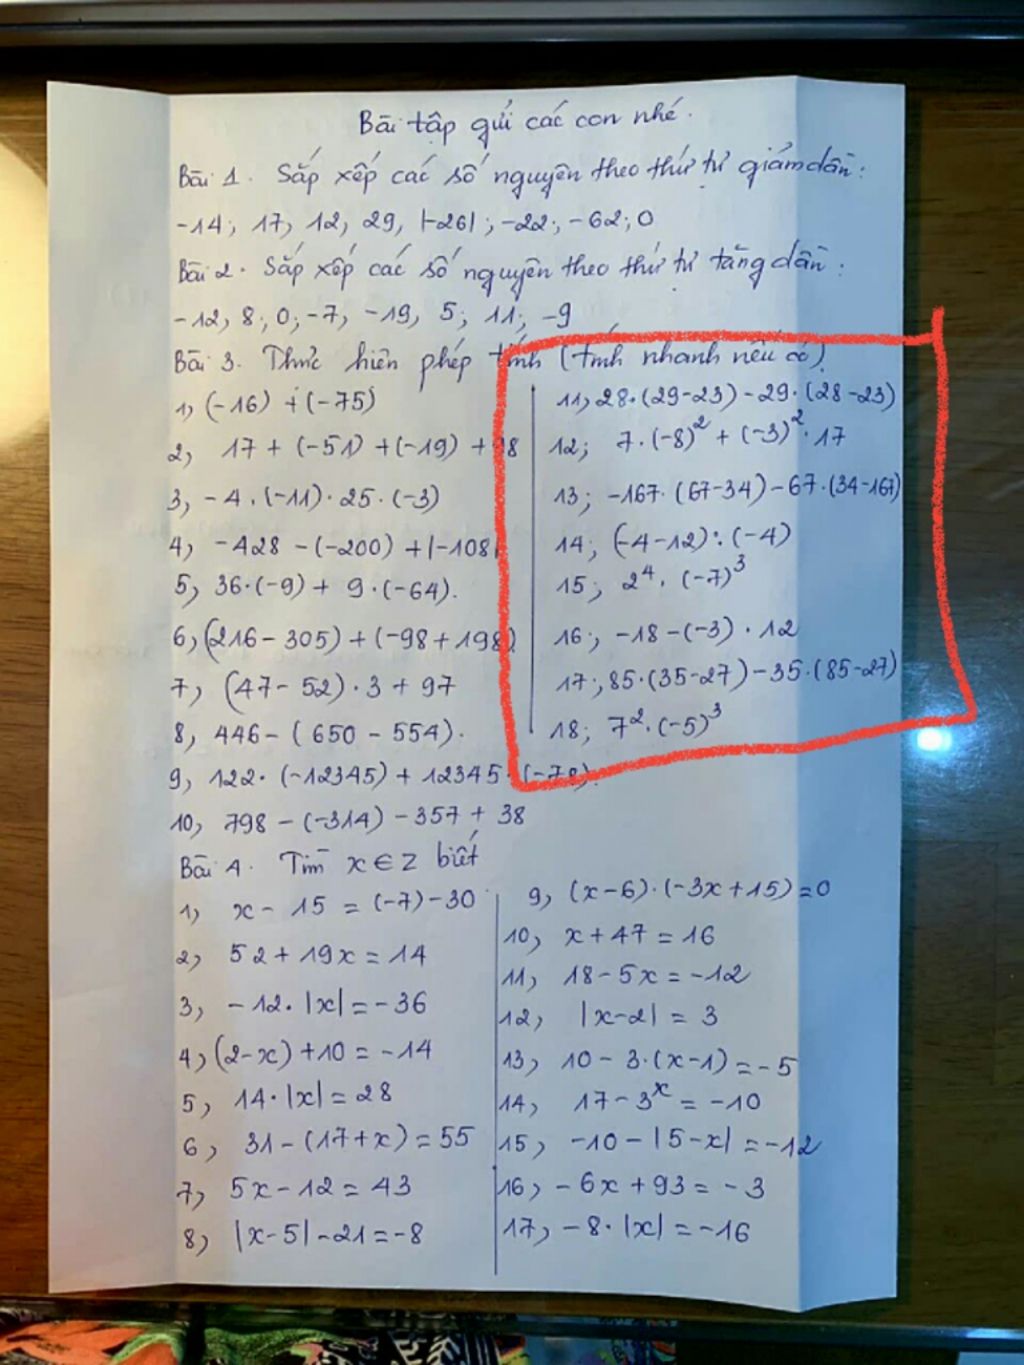 Bài tập gửi các con nhé.
Bài 1. Sắp xếp các số nguyên theo thứ tự giảm dần:
-14; 17; 12; 29, |-26|; -22; -62; 0
Bài 2. Sắp xếp các số nguyên theo thứ tự tăng dần:
-12, 8; 0; -7, -19, 5; 11; -9
Bài 3. Thực hiện phép tính (tính nhanh nếu có)
1, (-16) + (-75)
2, 17 + (-51) + (-19) + 98
3, -4 . (-11) . 25 . (-3)
4, -428 - (-200) + |-108|
5, 36.(-9) + 9.(-64).
6, (216 - 305) + (-98 + 198)
7, (47 - 52) . 3 + 97
8, 446 - (650 - 554).
9, 122. (-12345) + 12345.(-78).
10, 798 - (-314) - 357 + 38
11, 28.(29-23) - 29.(28-23)
12; 7.(-8)² + (-3)².17
13; -167. (67-34) - 67.(34-167)
14; (-4-12):(-4)
15; 2⁴. (-7)³
16; -18 - (-3) . 12
17; 85.(35-27) - 35.(85-27)
18; 7².(-5)³
Bài 4. Tìm x ∈ Z biết
1, x - 15 = (-7) - 30
2, 52 + 19x = 14
3, -12. |x| = -36
4, (2-x) + 10 = -14
5, 14.|x| = 28
6, 31 - (17+x) = 55
7, 5x - 12 = 43
8, |x-5| - 21 = -8
9, (x-6).(-3x+15) = 0
10, x + 47 = 16
11, 18 - 5x = -12
12, |x-2| = 3
13, 10 - 3.(x-1) = -5
14, 17 - 3ˣ = -10
15, -10 - |5-x| = -12
16, -6x + 93 = -3
17, -8. |x| = -16